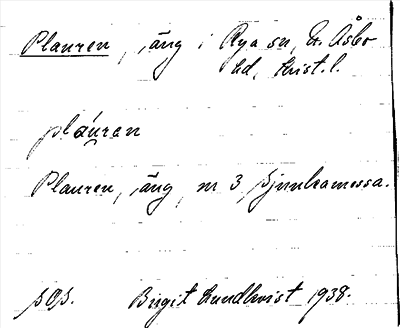 Planren, äng i Rya sn, N. Åsbo
hd, Krist. l.
pláṷran
Planren, äng, nr 3, Sjunkamossa.
SOS. Birgit Lundkvist 1938.